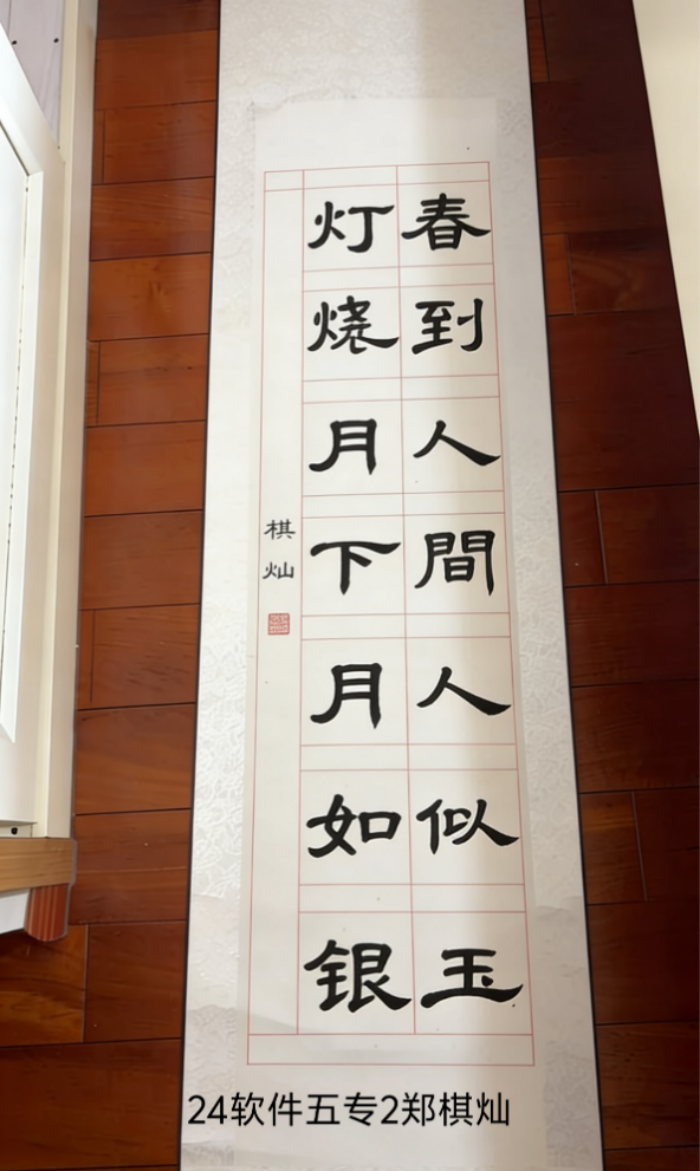 春到人間人似玉
灯烧月下月如银
棋灿
24软件五专2郑棋灿